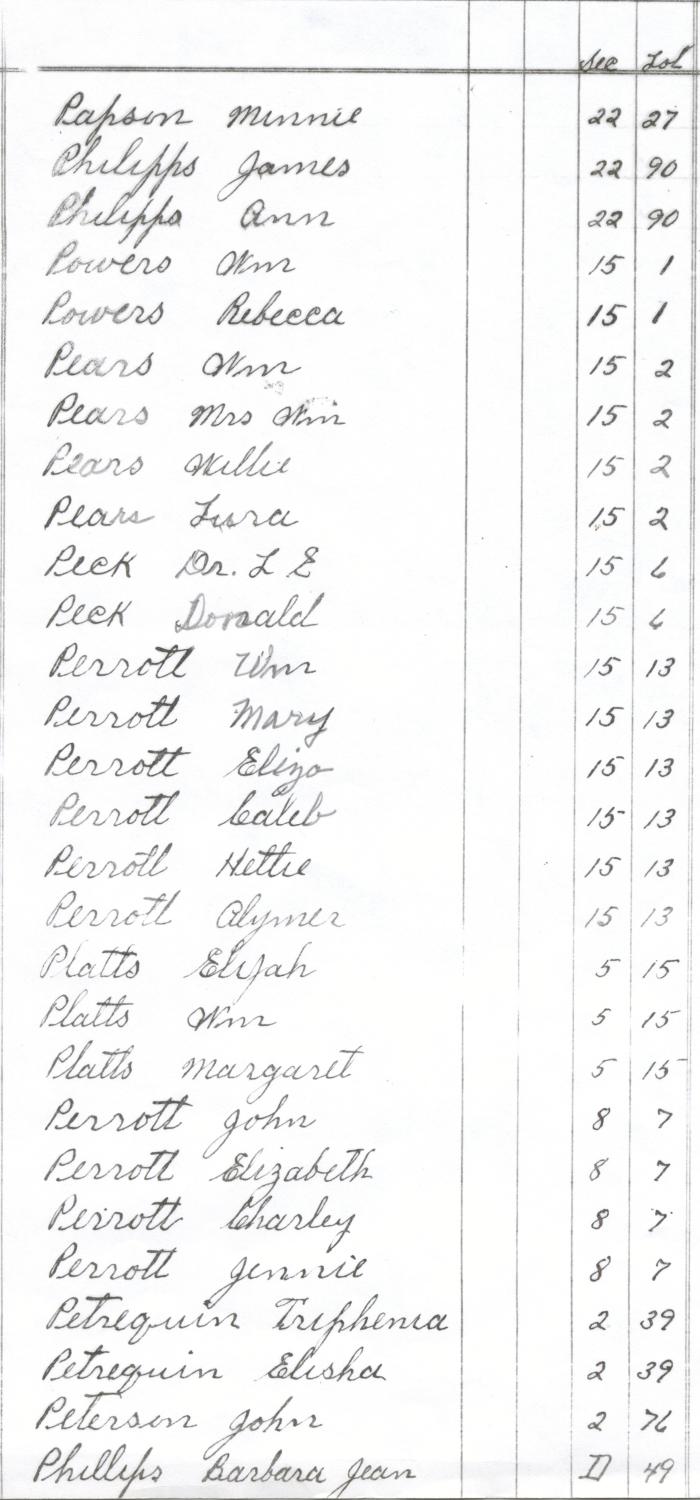 Sec Lot
Papson Minnie 22 27
Philipps James 22 90
Philipps Ann 22 90
Powers Wm 15 1
Powers Rebecca 15 1
Pears Wm 15 2
Pears Mrs Wm 15 2
Pears Willie 15 2
Pears 15 2
Peck Dr. L E 15 6
Peck Donald 15 6
Perrott Wm 15 13
Perrott Mary 15 13
Perrott Eliza 15 13
Perrott Caleb 15 13
Perrott Hettie 15 13
Perrott Alymer 15 13
Platts Elijah 5 15
Platts Wm 5 15
Platts Margaret 5 15
Perrott John 8 7
Perrott Elizabeth 8 7
Perrott Charley 8 7
Perrott Jennie 8 7
Petrequin Triphenia 2 39
Petrequin Elisha 2 39
Peterson John 2 76
Phillips Barbara Jean D 49